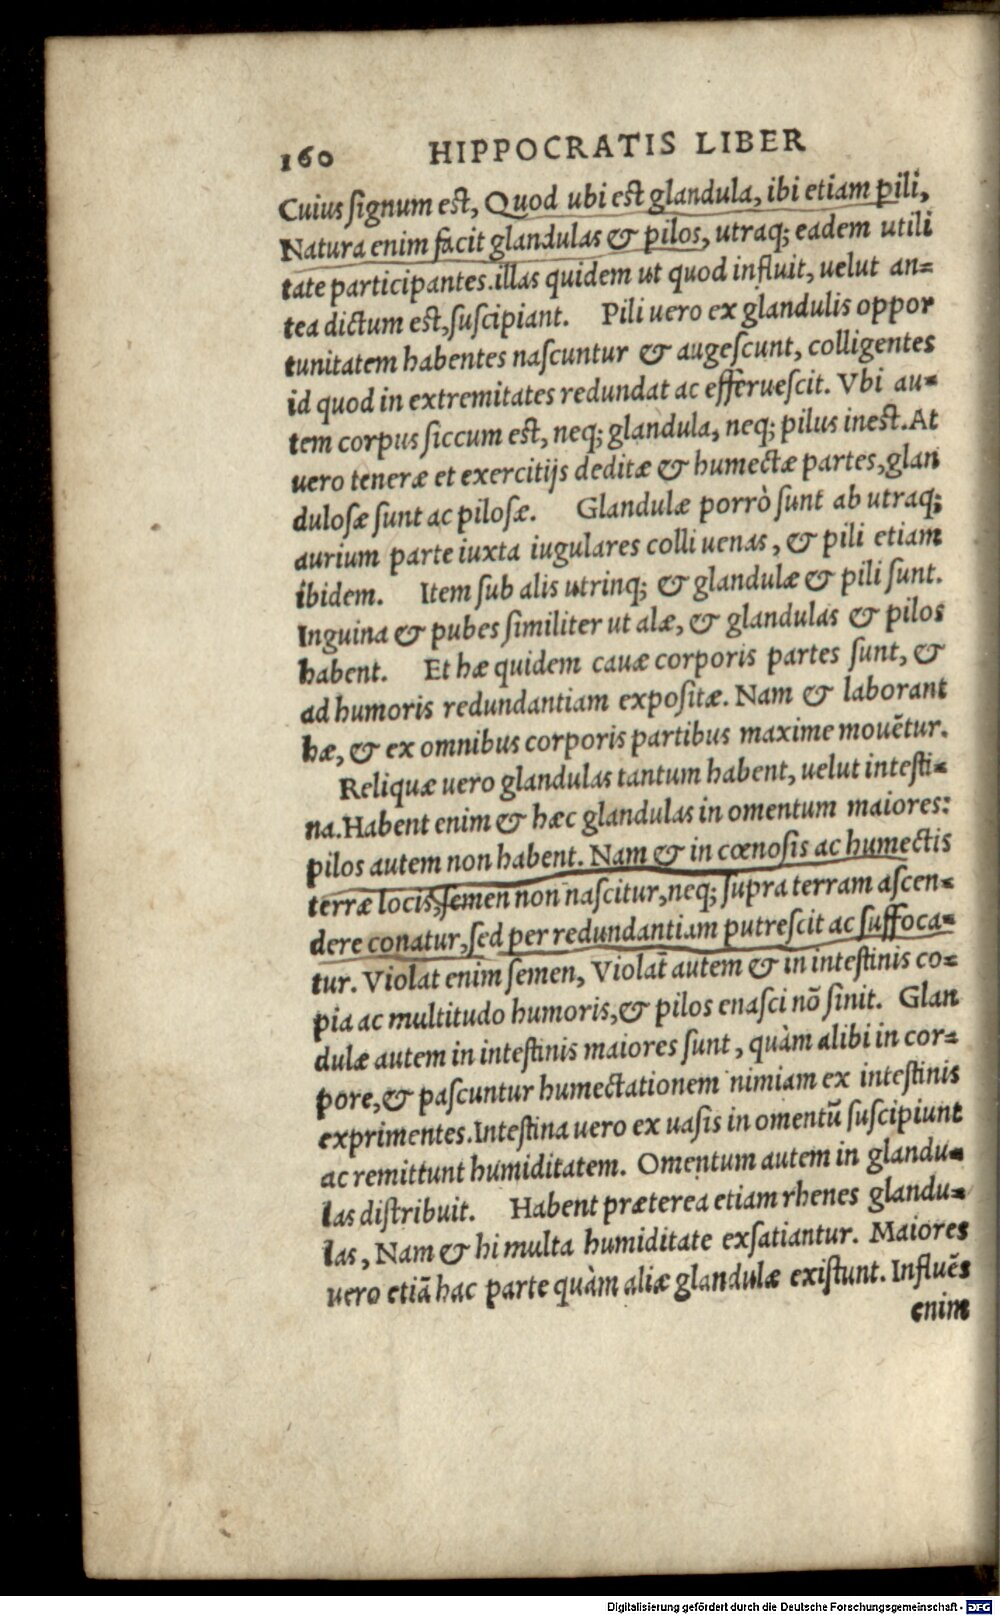 160 HIPPOCRATIS LIBER
Cuius ſignum eſt, Quod ubi eſt glandula, ibi etiam pili,
Natura enim facit glandulas & pilos, utraq; eadem utili
tate participantes.illas quidem ut quod influit, uelut an=
tea dictum eſt,ſuſcipiant. Pili uero ex glandulis oppor
tunitatem habentes naſcuntur & augeſcunt, colligentes
id quod in extremitates redundat ac efferueſcit. Vbi au=
tem corpus ſiccum eſt, neq; glandula, neq; pilus ineſt.At
uero teneræ et exercitijs deditæ & humectæ partes,glan
duloſæ ſunt ac piloſæ. Glandulæ porrò ſunt ab utraq;
aurium parte iuxta iugulares colli uenas, & pili etiam
ibidem. Item ſub alis utrinq; & glandulæ & pili ſunt.
Inguina & pubes ſimiliter ut alæ, & glandulas & pilos
habent. Et hæ quidem cauæ corporis partes ſunt, &
ad humoris redundantiam expoſitæ. Nam & laborant
hæ, & ex omnibus corporis partibus maxime mouētur.
Reliquæ uero glandulas tantum habent, uelut inteſti=
na.Habent enim & hæc glandulas in omentum maiores:
pilos autem non habent. Nam & in cœnoſis ac humectis
terræ locis,ſemen non naſcitur,neq; ſupra terram aſcen=
dere conatur,ſed per redundantiam putreſcit ac ſuffoca=
tur. Violat enim ſemen, Violat̄ autem & in inteſtinis co=
pia ac multitudo humoris,& pilos enaſci nō ſinit. Glan
dulæ autem in inteſtinis maiores ſunt, quàm alibi in cor=
pore,& paſcuntur humectationem nimiam ex inteſtinis
exprimentes.Inteſtina uero ex uaſis in omentū ſuſcipiunt
ac remittunt humiditatem. Omentum autem in glandu=
las diſtribuit. Habent præterea etiam rhenes glandu=
las, Nam & hi multa humiditate exſatiantur. Maiores
uero etiā hac parte quàm aliæ glandulæ exiſtunt. Influēs
enim
Digitalisierung gefördert durch die Deutsche Forschungsgemeinschaft - DFG